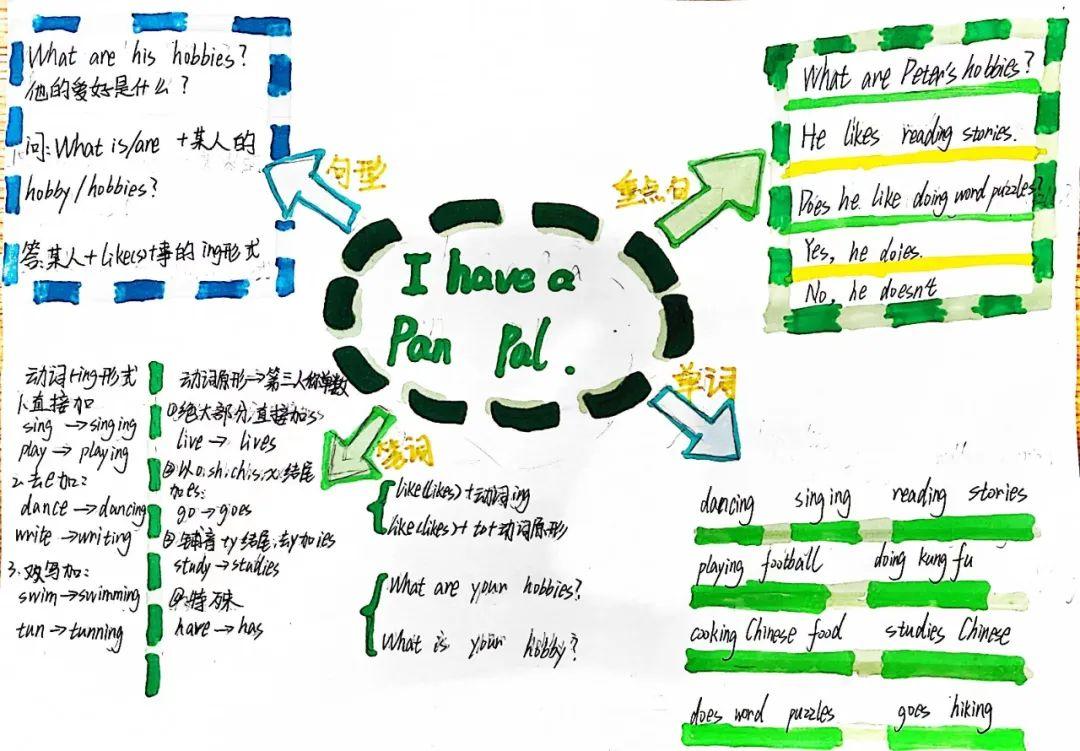 What are his hobbies?
他的爱好是什么?
问:What is/are +某人的
hobby/hobbies?
答:某人+like(s)+事的ing形式
句型
重点句
What are Peter's hobbies?
He likes reading stories.
Does he like doing word puzzles?
Yes, he doies.
No, he doesn't
I have a
Pan Pal.
单词
动词+ing形式
1.直接加
sing→singing
play→playing
2.去e加:
dance→dancing
write→writing
3.双写加:
swim→swimming
tun→tunning
动词原形→第三人称单数
①绝大部分直接加s
live→lives
②以o.sh.ch.s.x.结尾
加es:
go→goes
③辅音+y结尾,去y加ies
study→studies
④特殊
have→has
like(likes)+动词ing
like(likes)+to+动词原形
What are your hobbies?
What is your hobby?
dancing singing reading stories
playing football doing kung fu
cooking Chinese food studies Chinese
does word puzzles goes hiking